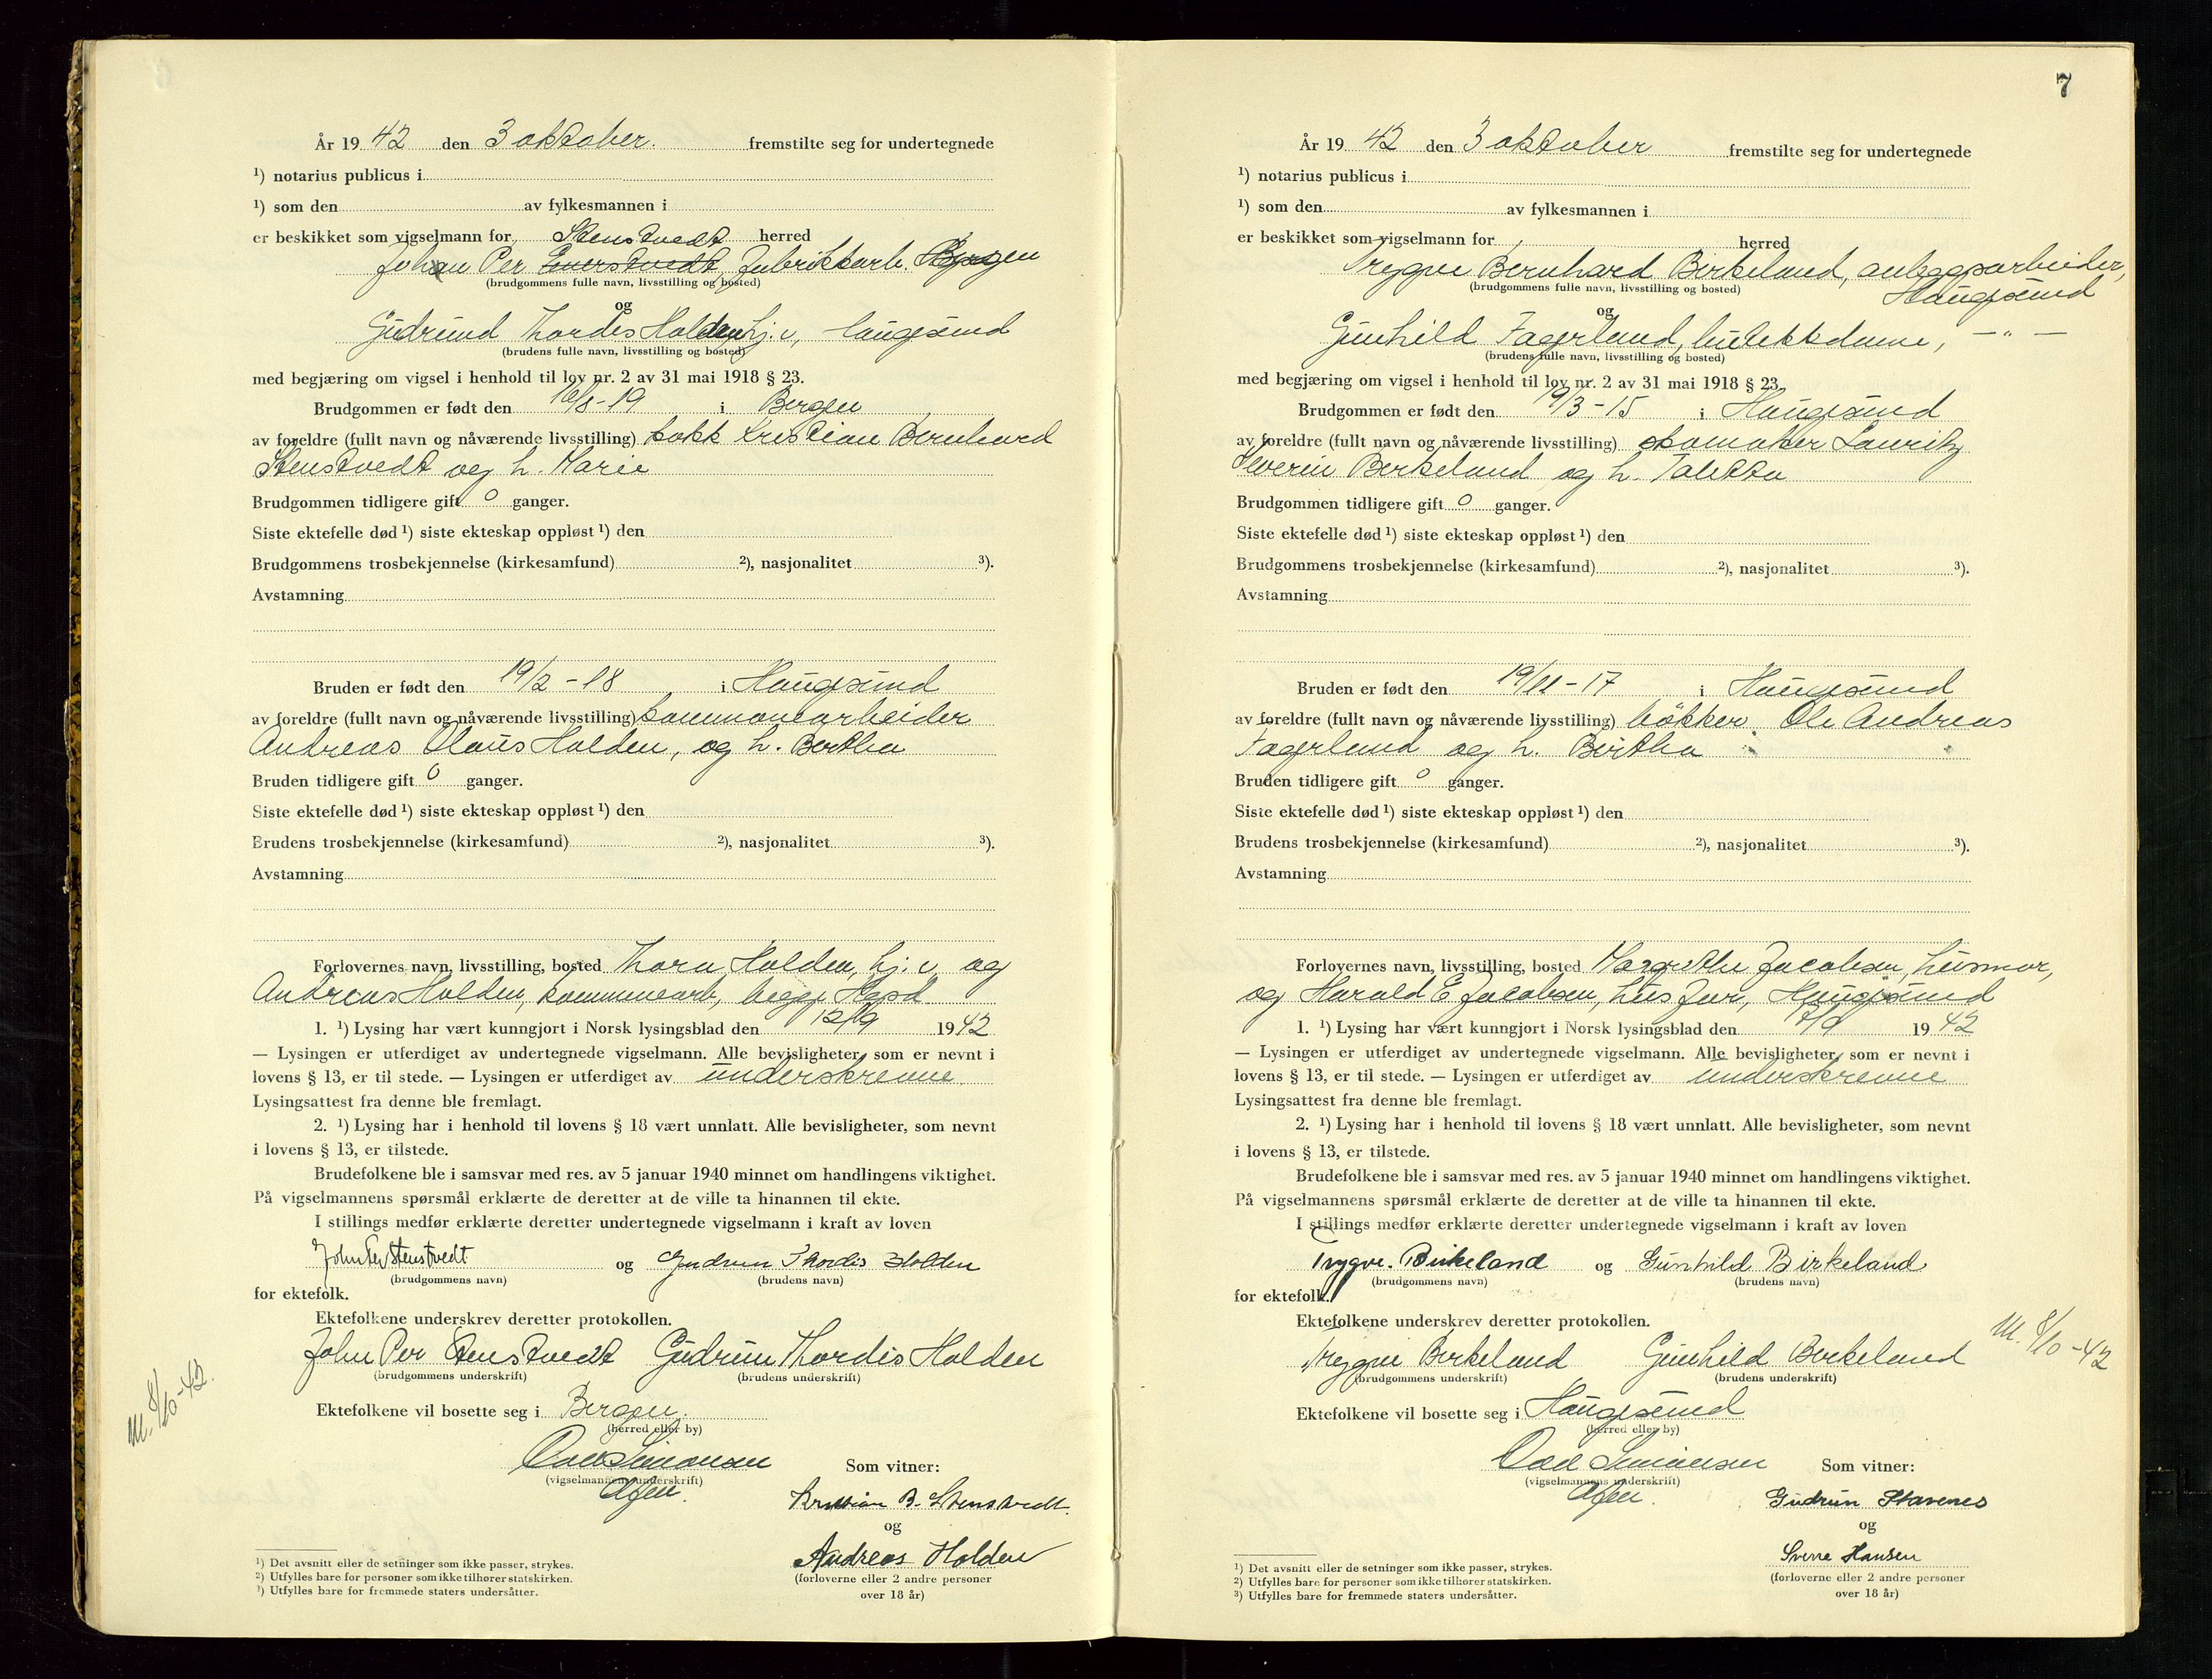 År 19 42 den 3 oktober. fremstilte seg for undertegnede
¹) notarius publicus i
¹) som den av fylkesmannen i
er beskikket som vigselmann for Stenstvedt herred
Johan Per fabrikkarb. Bergen
(brudgommens fulle navn, livsstilling og bosted)
og
Gudrund Thordis Holden hj. v, Haugesund
(brudens fulle navn, livsstilling og bosted)
med begjæring om vigsel i henhold til lov nr. 2 av 31 mai 1918 § 23.
Brudgommen er født den 16/8-19 i Bergen
av foreldre (fullt navn og nåværende livsstilling) kokk Kristian Bernhard
Stenstvedt og h. Marie
Brudgommen tidligere gift 0 ganger.
Siste ektefelle død ¹) siste ekteskap oppløst ¹) den
Brudgommens trosbekjennelse (kirkesamfund) ²), nasjonalitet ³).
Avstamning
Bruden er født den 19/2-18 i Haugesund
av foreldre (fullt navn og nåværende livsstilling) kommunearbeider
Andreas Olaus Holden, og h. Bertha
Bruden tidligere gift 0 ganger.
Siste ektefelle død ¹) siste ekteskap oppløst ¹) den
Brudens trosbekjennelse (kirkesamfund) ²), nasjonalitet ³).
Avstamning
Forlovernes navn, livsstilling, bosted Thora Holden, hj. v, og
Andreas Holden, kommunearb, begge Hgsd.
1. ¹) Lysing har vært kunngjort i Norsk lysingsblad den 12/9 19 42
— Lysingen er utferdiget av undertegnede vigselmann. Alle bevisligheter, som er nevnt i
lovens § 13, er til stede. — Lysingen er utferdiget av underskrevne
Lysingsattest fra denne ble fremlagt.
2. ¹) Lysing har i henhold til lovens § 18 vært unnlatt. Alle bevisligheter, som nevnt
i lovens § 13, er tilstede.
Brudefolkene ble i samsvar med res. av 5 januar 1940 minnet om handlingens viktighet.
På vigselmannens spørsmål erklærte de deretter at de ville ta hinannen til ekte.
I stillings medfør erklærte deretter undertegnede vigselmann i kraft av loven
John Per Stenstvedt og Gudrun Thordis Holden
(brudgommens navn) (brudens navn)
for ektefolk.
Ektefolkene underskrev deretter protokollen.
John Per Stenstvedt Gudrun Thordis Holden
(brudgommens underskrift) (brudens underskrift)
M. 8/10-42.
Ektefolkene vil bosette seg i Bergen.
(herred eller by)
Simonsen
(vigselmannens underskrift)
Som vitner:
Kristian B. Stenstvedt.
og
Andreas Holden
(forloverne eller 2 andre personer
over 18 år)
¹) Det avsnitt eller de setninger som ikke passer, strykes.
²) Utfylles bare for personer som ikke tilhører statskirken.
³) Utfylles bare for fremmede staters undersåtter.
7
År 19 42 den 3 oktober fremstilte seg for undertegnede
¹) notarius publicus i
¹) som den av fylkesmannen i
er beskikket som vigselmann for herred
Trygve Bernhard Birkeland, anleggsarbeider,
(brudgommens fulle navn, livsstilling og bosted) Haugesund
og
Gunhild Fagerland, butikkdame, — " —
(brudens fulle navn, livsstilling og bosted)
med begjæring om vigsel i henhold til lov nr. 2 av 31 mai 1918 § 23.
Brudgommen er født den 19/3-15 i Haugesund
av foreldre (fullt navn og nåværende livsstilling) skomaker Lauritz
Severin Birkeland og h. Taletta
Brudgommen tidligere gift 0 ganger.
Siste ektefelle død ¹) siste ekteskap oppløst ¹) den
Brudgommens trosbekjennelse (kirkesamfund) ²), nasjonalitet ³).
Avstamning
Bruden er født den 19/11-17 i Haugesund
av foreldre (fullt navn og nåværende livsstilling) bökker Ole Andreas
Fagerland og h. Bertha
Bruden tidligere gift 0 ganger.
Siste ektefelle død ¹) siste ekteskap oppløst ¹) den
Brudens trosbekjennelse (kirkesamfund) ²), nasjonalitet ³).
Avstamning
Forlovernes navn, livsstilling, bosted Margrethe Jacobsen, husmor,
og Harald E Jacobsen, husfar, Haugesund
1. ¹) Lysing har vært kunngjort i Norsk lysingsblad den 7/9 19 42
— Lysingen er utferdiget av undertegnede vigselmann. Alle bevisligheter, som er nevnt i
lovens § 13, er til stede. — Lysingen er utferdiget av underskrevne
Lysingsattest fra denne ble fremlagt.
2. ¹) Lysing har i henhold til lovens § 18 vært unnlatt. Alle bevisligheter, som nevnt
i lovens § 13, er tilstede.
Brudefolkene ble i samsvar med res. av 5 januar 1940 minnet om handlingens viktighet.
På vigselmannens spørsmål erklærte de deretter at de ville ta hinannen til ekte.
I stillings medfør erklærte deretter undertegnede vigselmann i kraft av loven
Trygve. Birkeland og Gunhild Birkeland
(brudgommens navn) (brudens navn)
for ektefolk.
Ektefolkene underskrev deretter protokollen.
Trygve Birkeland Gunhild Birkeland M. 8/10-42
(brudgommens underskrift) (brudens underskrift)
Ektefolkene vil bosette seg i Haugesund
(herred eller by)
Simonsen
(vigselmannens underskrift)
Som vitner:
Gudrun Stavenes
og
Sverre Hansen
(forloverne eller 2 andre personer
over 18 år)
¹) Det avsnitt eller de setninger som ikke passer, strykes.
²) Utfylles bare for personer som ikke tilhører statskirken.
³) Utfylles bare for fremmede staters undersåtter.